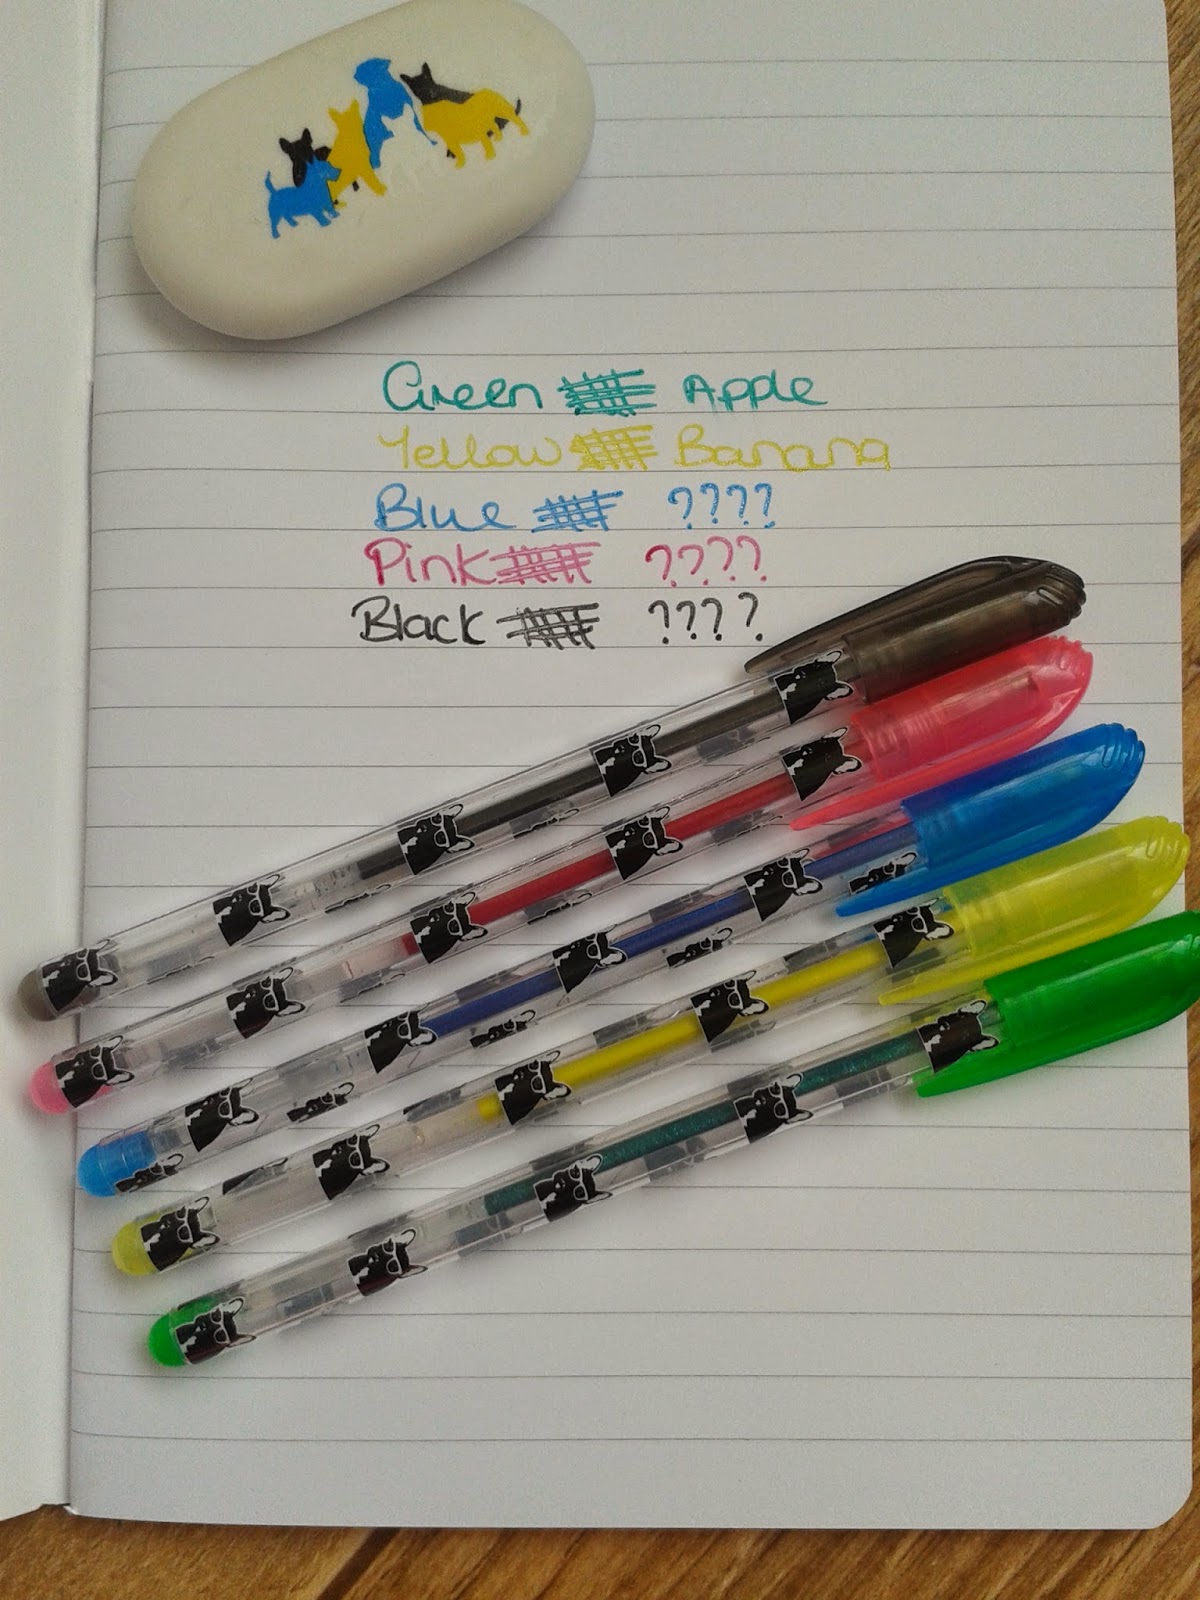 Green Apple
Yellow Banana
Blue ????
Pink ????
Black ????